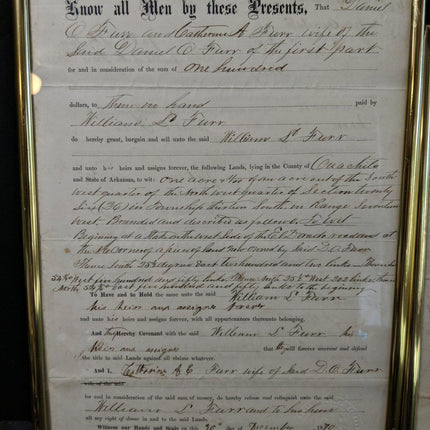 Know all Men by these Presents, That Daniel
O. Furr and Catherine A Furr wife of the
Said Daniel O Furr of the first part
for and in consideration of the sum of one hundred
dollars, to them in hand paid by
William S. Furr
do hereby grant, bargain and sell unto the said William S. Furr
and unto his heirs and assigns forever, the following Lands, lying in the County of Ouachita
and State of Arkansas, to wit: one acre of an acre of the South
west quarter of the North west quarter of Section twenty
Six (26) in Township thirteen South in Range Seventeen
West. Bounded and described as follows To wit
Beginning at a Stake on the West Side of the Road
corner of a piece of land now owned by Said D.O. Furr
Thence South degrees East two hundred and two links Thence
South West five hundred and fifty links Thence North West 202 links thence
North East five hundred and fifty links to the beginning
To Have and to Hold the same unto the said William S. Furr
his heirs and assigns forever
and unto his heirs and assigns forever, with all appurtenances thereunto belonging.
And hereby Covenant with the said William S. Furr his
heirs and assigns that will forever warrant and defend
the title to said Lands against all claims whatever.
And I, Furr wife of Said D.O. Furr
wife of the said
for and in consideration of said sum of money, do hereby release and relinquish unto the said
William S Furr and to his heirs
all my right of dower in and to the said Lands.
Witness our Hands and Seals on this day of December 1870